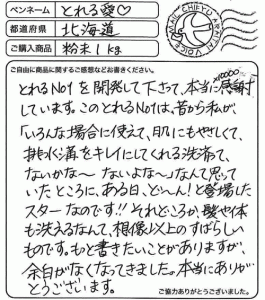 ペンネーム とれる愛♡
都道府県 北海道
ご購入商品 粉末1kg
ご自由に商品に関するご感想などお書きください。
とれるNo1を開発して下さって、本当に感謝
しています。このとれるNo1は、昔から私が、
「いろんな場合に使えて、肌にもやさしくて、
排水溝をキレイにしてくれる洗剤って、
ないかな〜 ないよな〜」なんて思って
いたところに、ある日、どーん!と登場した
スターなのです!!それどころか、髪や体
も洗えるなんて、想像以上のすばらしい
ものです。もっと書きたいことがありますが、
余白がなくなってきました。本当にありが
とうございます。
ご協力ありがとうございました。